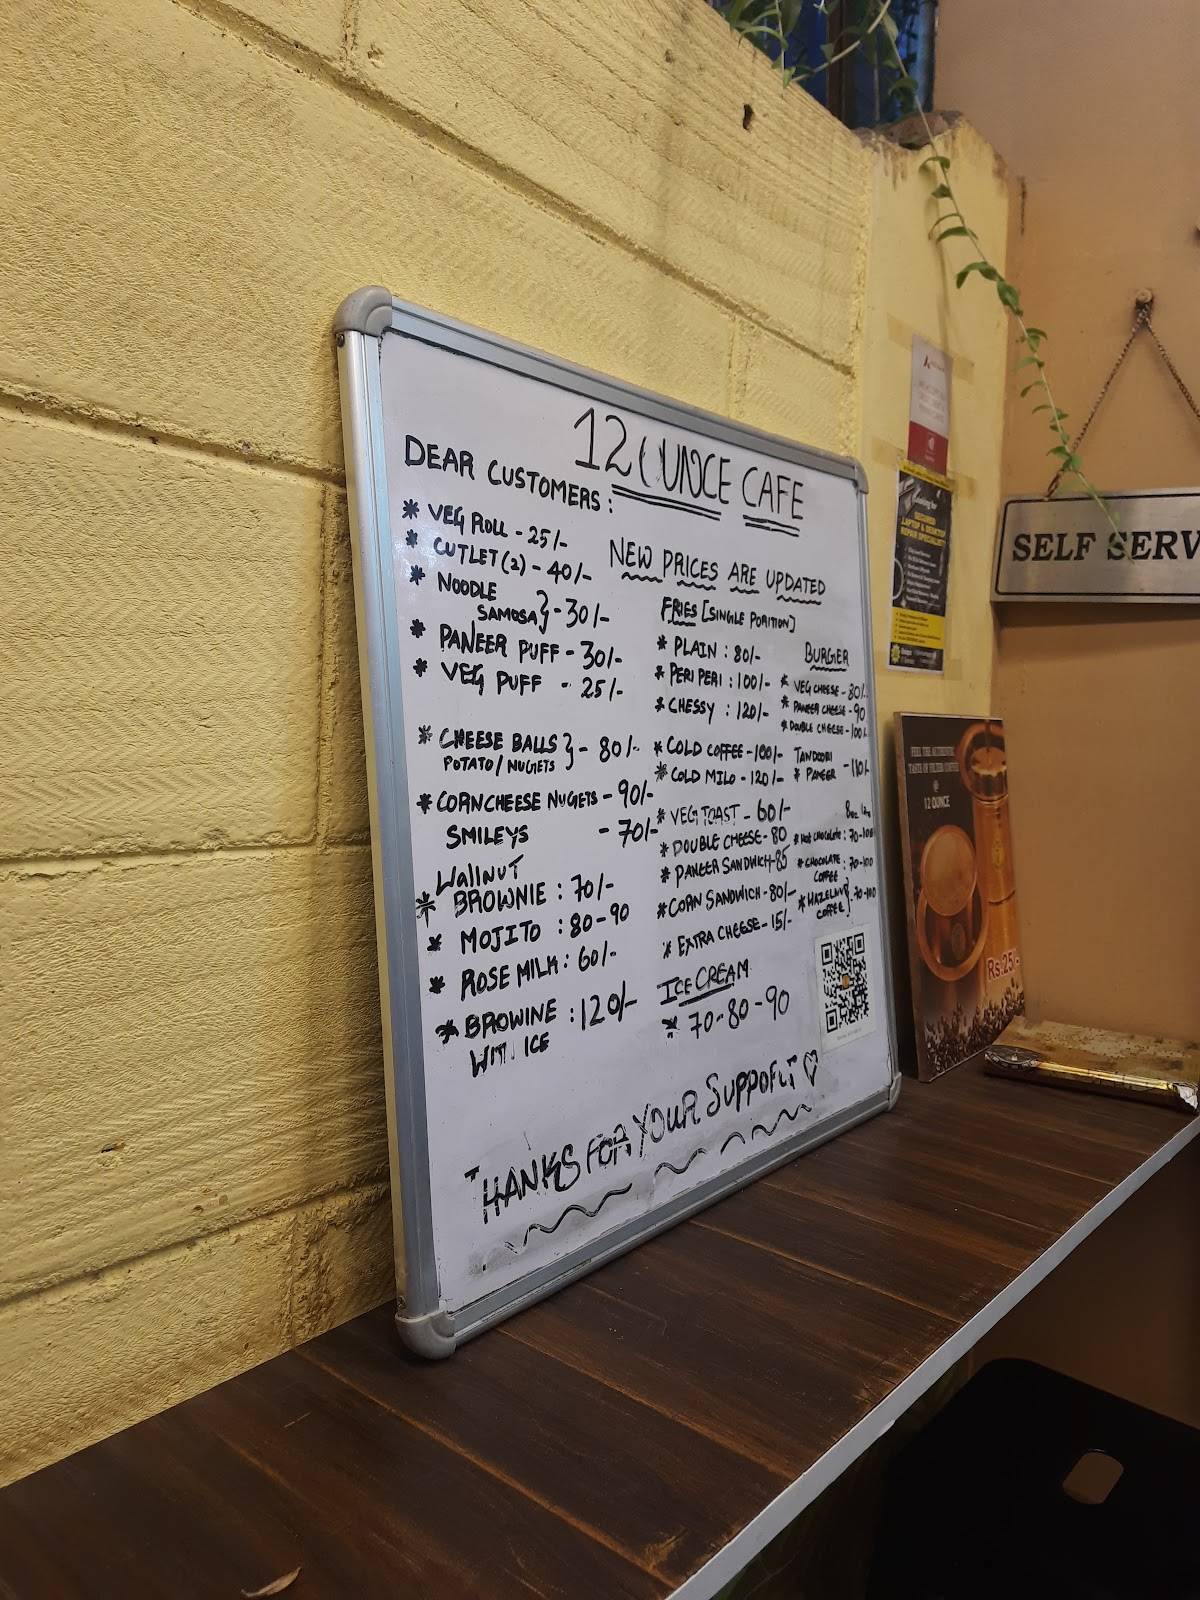 12 OUNCE CAFE
DEAR CUSTOMERS:
NEW PRICES ARE UPDATED
* VEG ROLL - 25/-
* CUTLET (2) - 40/-
* NOODLE
SAMOSA } - 30/-
* PANEER PUFF - 30/-
* VEG PUFF - 25/-
* CHEESE BALLS } - 80/-
POTATO / NUGGETS
* CORN CHEESE NUGGETS - 90/-
SMILEYS - 70/-
WAllNUT
* BROWNIE : 70/-
* MOJITO : 80-90
* ROSE MILK : 60/-
* BROWINE : 120/-
WITH ICE
FRIES [SINGLE PORITION]
* PLAIN : 80/-
* PERI PERI : 100/-
* CHESSY : 120/-
* COLD COFFEE - 100/-
* COLD MILO - 120/-
* VEG TOAST - 60/-
* DOUBLE CHEESE - 80
* PANEER SANDWICH - 85
* CORN SANDWICH - 80/-
* EXTRA CHEESE - 15/-
ICE CREAM
* 70-80-90
BURGER
* VEG CHEESE - 80/-
* PANEER CHEESE - 90
* DOUBLE CHEESE - 100/-
TANDOORI
* PANEER - 110/-
* HOT CHOCOLATE : 70-100
* CHOCOLATE : 70-100
COFFEE
* HAZELNUT } 70-100
COFFEE
THANKS FOR YOUR SUPPORT
SELF SERV
LAPTOP & DESKTOP
REPAIR SPECIALIST
FEEL THE AUTHENTIC
TASTE OF FILTER COFFEE
@
12 OUNCE
Rs.25/-